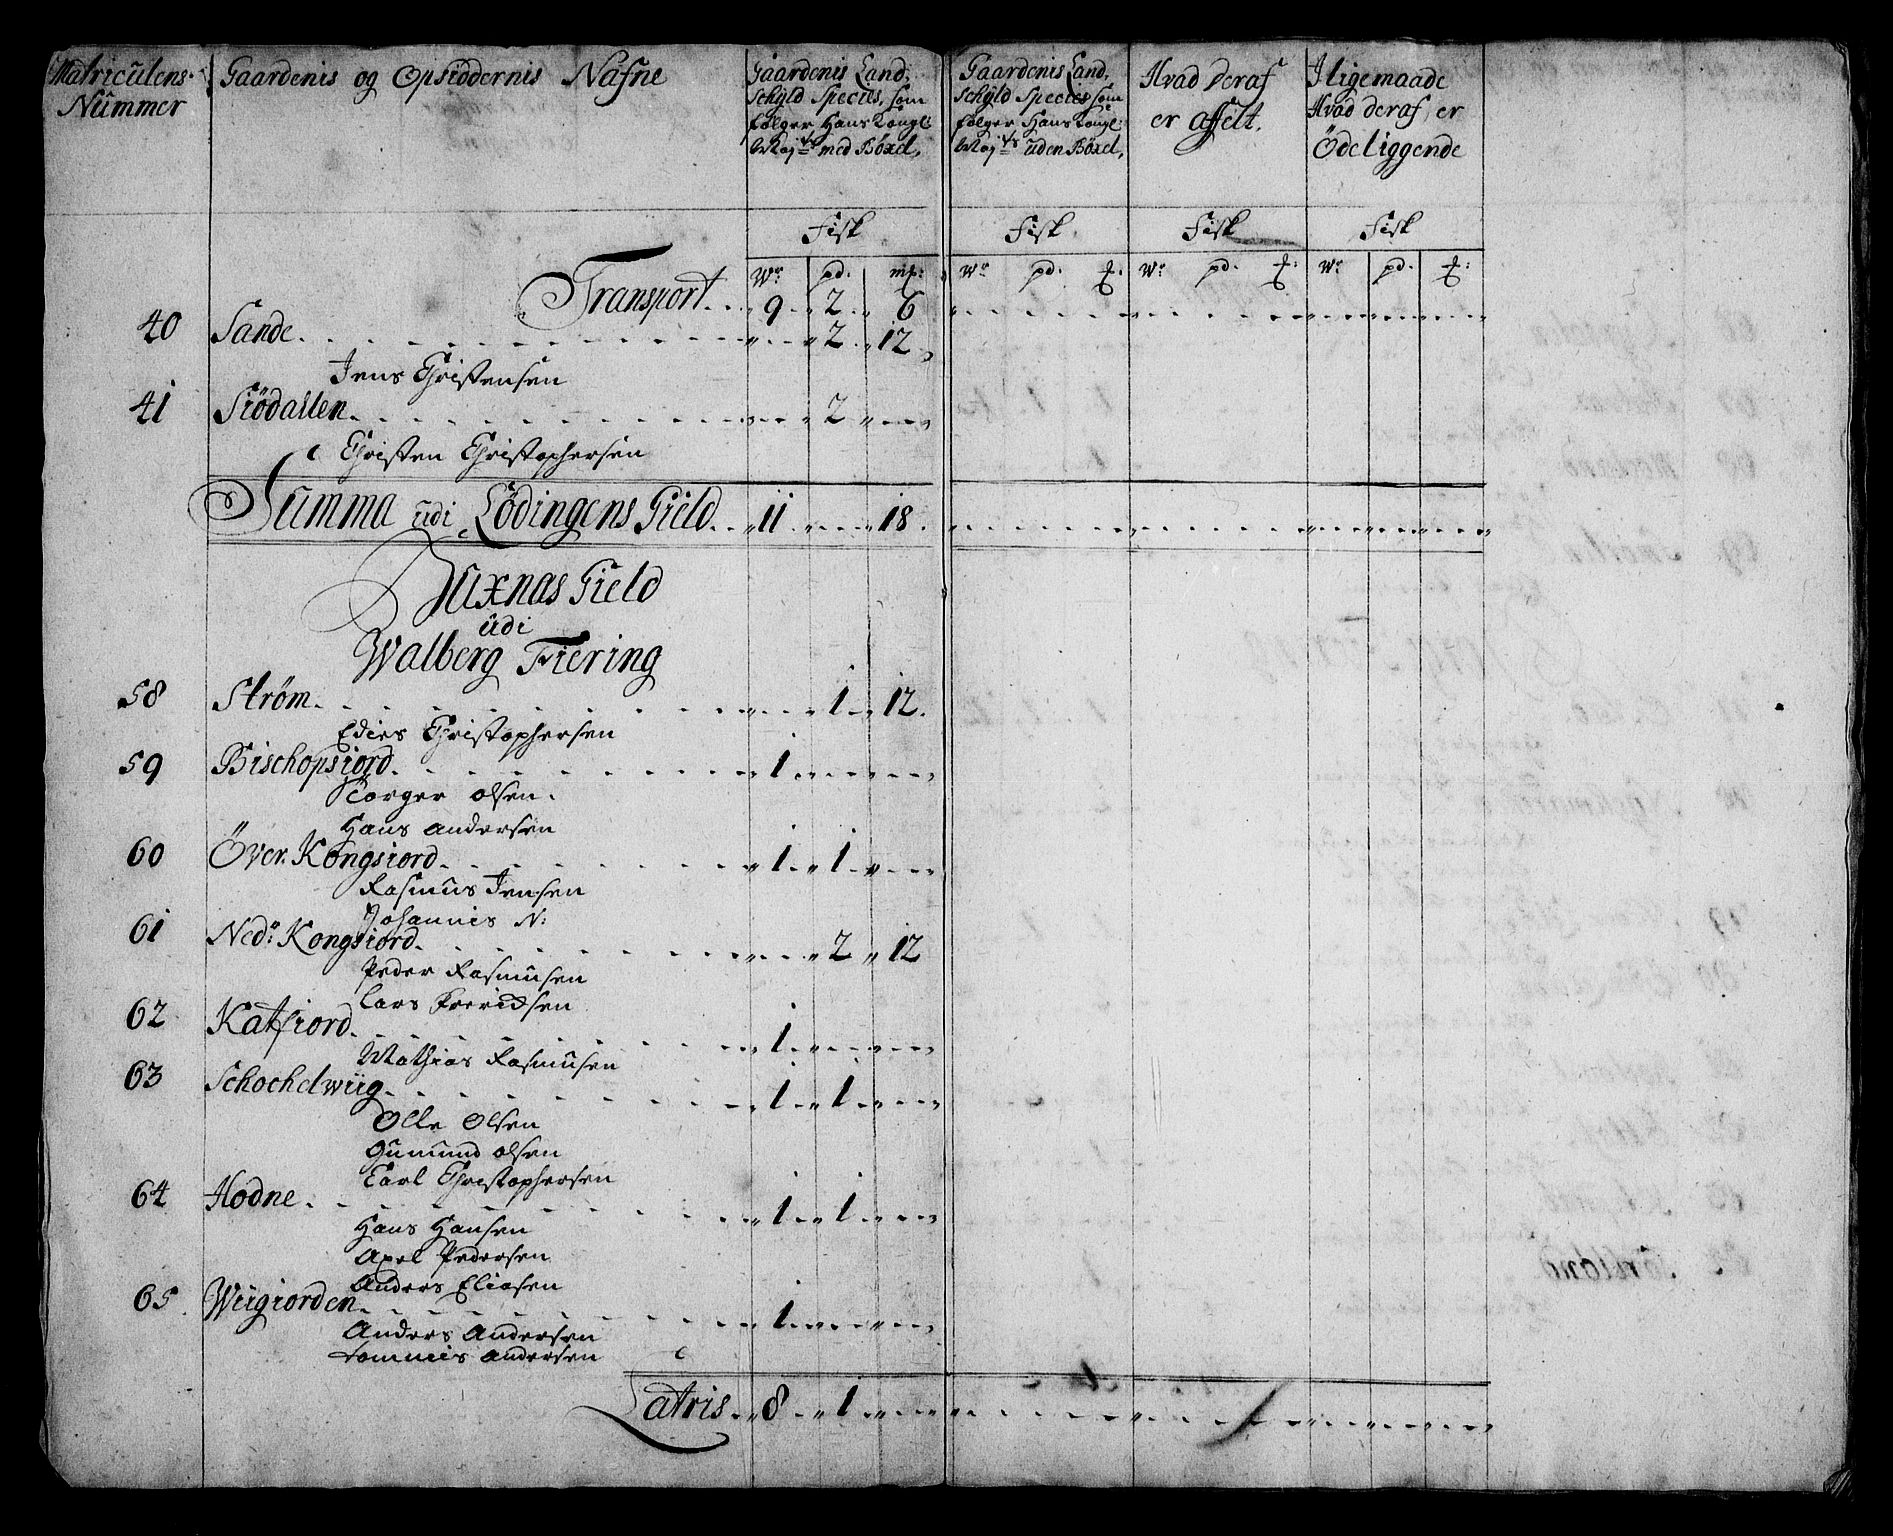 Matriculens Nummer
Gaardenis og Opsiddernis Nafne
Gaardenis Land,
Schyld Species, som
følger Hans Kongl:
Maj:ts med Böxel,
Gaardenis Land,
Schyld Species som
følger Hans Kongl:
Maj:ts uden Böxel,
Hvad deraf
er affelt.
Iligemaade
Hvad deraf er
Ödeliggende
Fisk Fisk Fisk Fisk
Wr pd. mk: Wr pd. Wr pd. Wr pd.
Transport 9 2 6
40 Sande 2 12
Jens Christensen
41 Siödallen 2
Christen Christophersen
Summa udi Lödingens Gield 11 18
Huxnas Gield
udi
Walberg Fiering
58 Strøm 1 12
Edies Christophersen
59 Bischopsiord 1
Torger olsen
Hans andersen
60 Över Kongsiord 1 1
Rasmus Jensen
Johannis N:
61 Nedr: Kongsiord 2 12
Peder Rasmusen
Lars Fredrichsen
62 Katfiord 1
Mathias Rasmusen
63 Schochelwiig 1 1
Olle Olsen
Gumund olsen
Carl Christophersen
64 Hodne 1 1
Hans Hansen
Axel Pedersen
Anders Eliasen
65 Wiigiorden 1
Anders Andersen
Tommies andersen
Latris 8 1